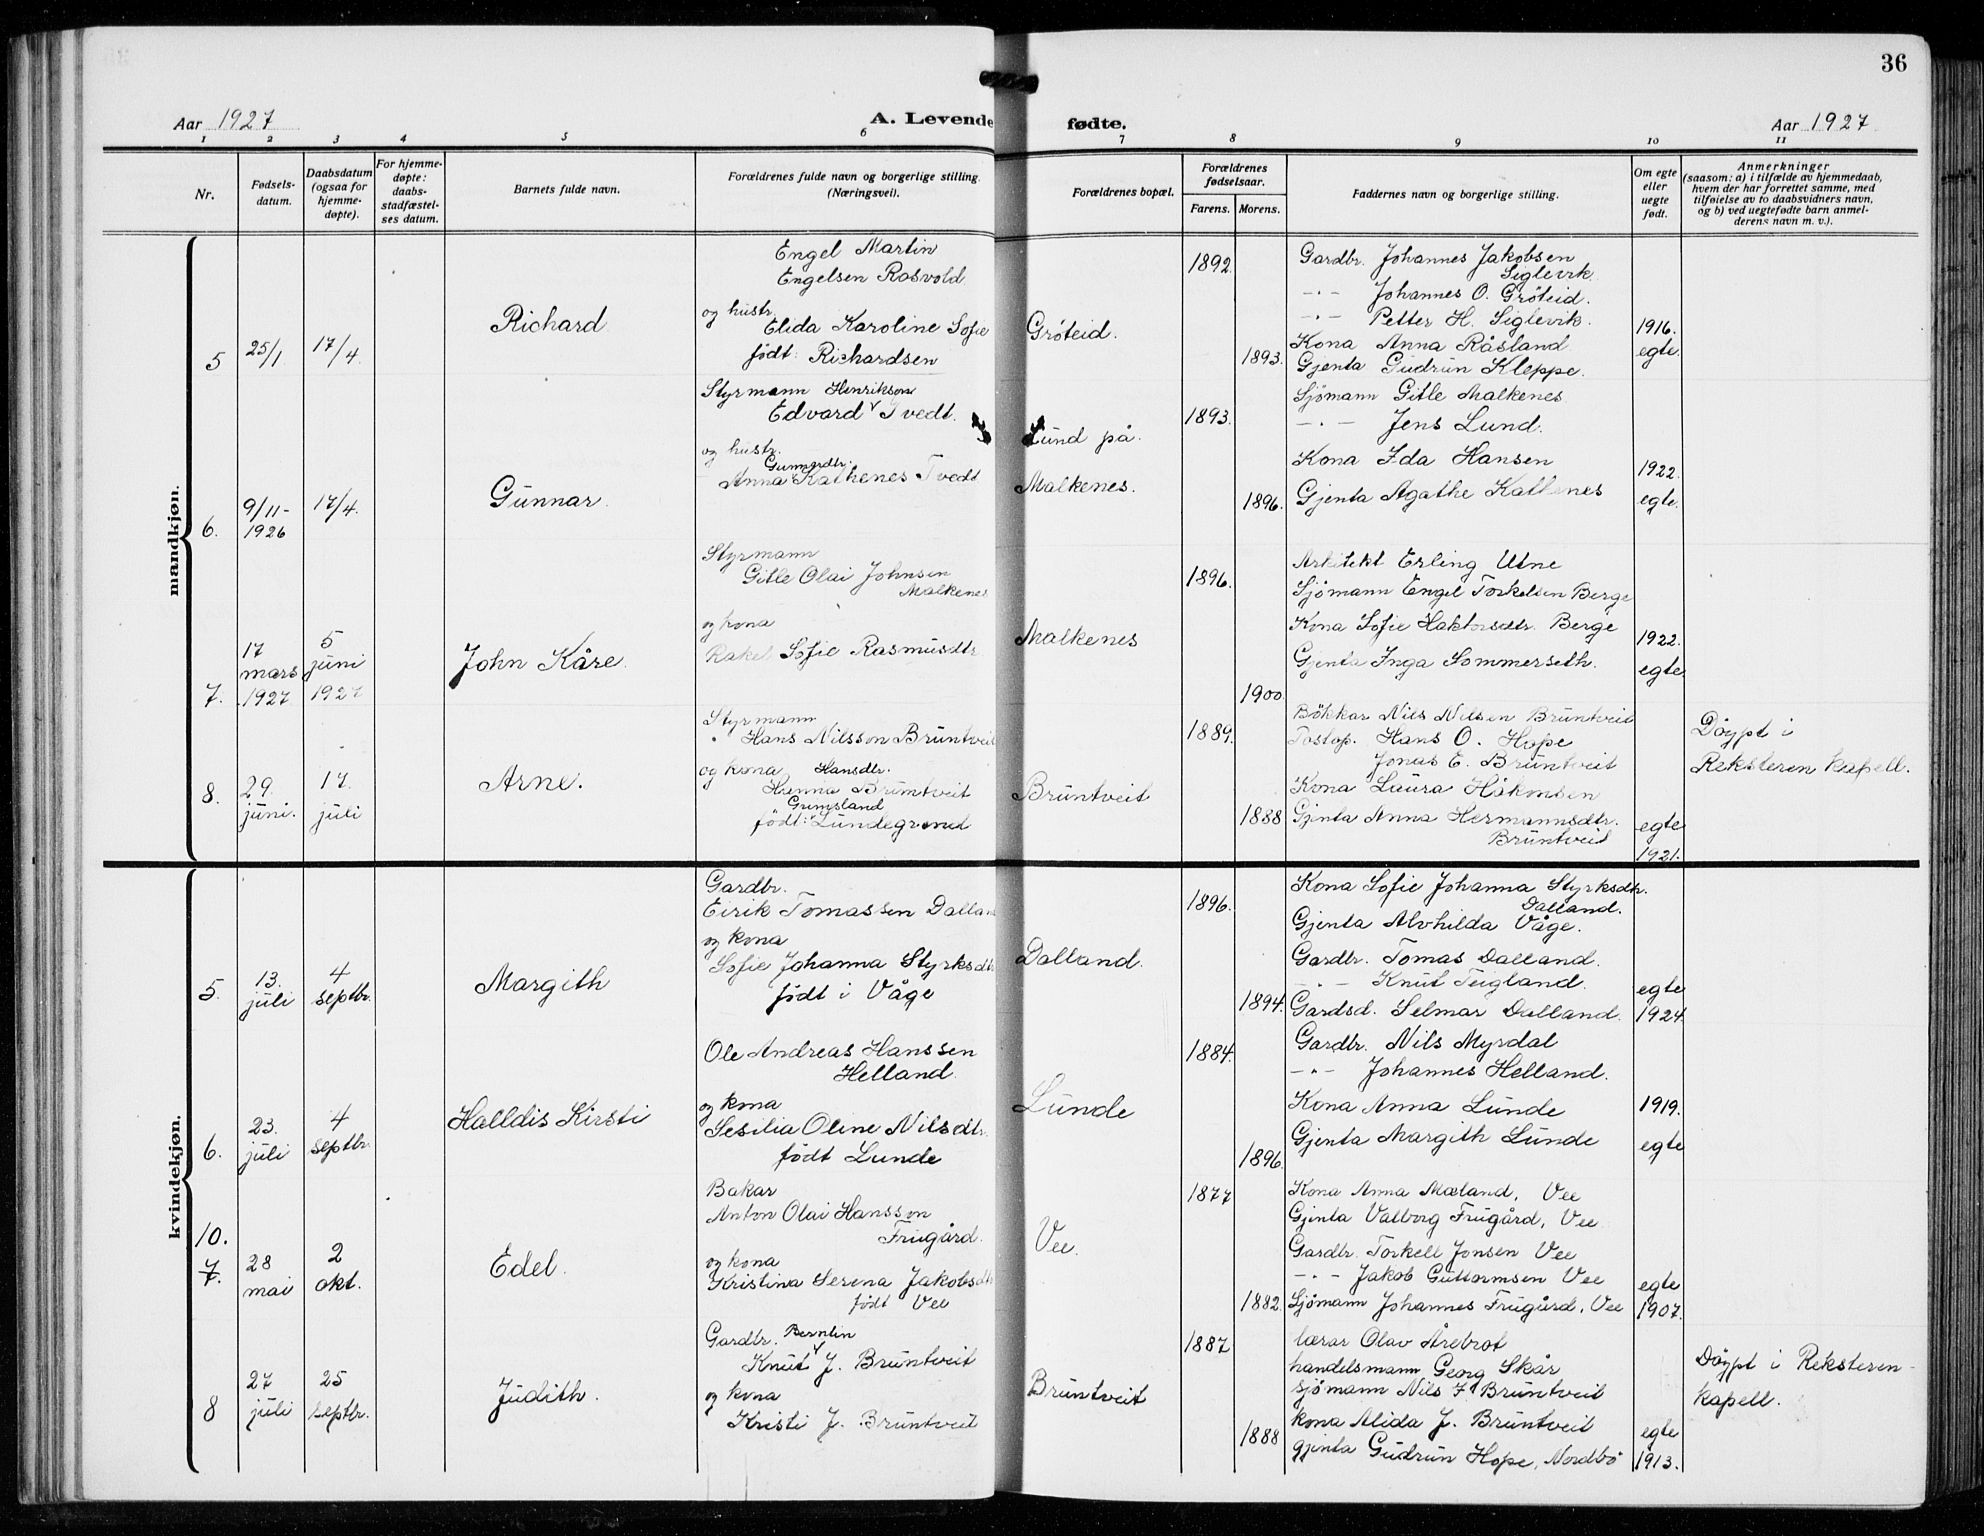 36
Aar 1927
A. Levende fødte.
Aar 1927
1 2 3 4 5 6 7 8 9 10 11
Nr.
Fødsels-
datum.
Daabsdatum
(ogsaa for
hjemme-
døpte).
For hjemme-
døpte:
daabs-
stadfæstel-
ses datum.
Barnets fulde navn.
Forældrenes fulde navn og borgerlige stilling.
(Næringsveil).
Forældrenes bopæl.
Forældrenes
fødselsaar.
Farens. Morens.
Faddernes navn og borgerlige stilling.
Om egte
eller
uegte
født.
Anmerkninger
(saasom: a) i tilfælde av hjemmedaab,
hvem der har forrettet samme, med
tilføielse av to daabsvidners navn,
og b) ved uegtefødte barn anmel-
derens navn m. v.).
mandkjøn.
5
25/1
17/4.
Richard
Engel Martin
Engelsen Rosvold
og hustr.
Elida Karoline Sofie
født: Richardsen
Gróteid.
1892.
1893.
Gardbr. Johannes Jakobsen
Siglevik
-"- Johannes O. Gróteid.
-"- Petter H. Siglevik.
Kona Anna Råsland
Gjenta Gudrun Kleppe.
1916.
egte.
6.
9/11-
1926
17/4.
Gunnar
Styrmann Henrikson
Edvard Tvedt.
og hustr.
Gunnardtr.
Anna Kathenes Tvedt
Lund på
Malkenes.
1893.
1896.
Sjømann Gitle Malkenes
-"- Jens Lund.
Kona Ida Hansen
Gjenta Agathe Kathenes
1922.
egte.
7.
17
mars
1927
5
juni
1927
John Kåre.
Styrmann
Gitle Olai Johnsen
Malkenes
og kona
Rakel Sofie Rasmusdtr
Malkenes
1896.
1900.
Arkitekt Erling Utne
Sjömann Engel Torkelsen Berge
Kona Sofie Haktorsdtr. Berge
Gjenta Inga Sommerseth.
1922.
egte.
8.
29.
juni.
17.
juli
Arne.
Styrmann
Hans Nilsson Bruntveit
og kona Hansdtr.
Hanna Bruntveit
Grimsland
født: Lundegrend
Bruntveit
1889.
1888
Bökkar Nils Nilsen Bruntveit
Postop. Hans O. Hope
Jonas E. Bruntveit
Kona Laura Håkonsen
Gjenta Anna Hermannsdtr.
Bruntveit
egte
1921.
Döypt i
Reksteren kapell.
kvindekjøn.
5.
13.
juli
4
septbr.
Margith
Gardbr.
Eirik Tomassen Dalland
og kona
Sofie Johanna Styrksdtr
født i Våge
Dalland.
1896.
1894.
Kona Sofie Johanna Styrksdtr.
Dalland.
Gjenta Alvhilda Våge.
Gardbr. Tomas Dalland.
-"- Knut Teigland.
Gardsd. Selmar Dalland.
egte
1924.
6.
23.
juli
4
septbr.
Halldis Kirsti
Ole Andreas Hanssen
Helland.
og kona
Sesilia Oline Nilsdtr.
født Lunde
Lunde
1884.
1896.
Gardbr. Nils Myrdal
-"- Johannes Helland.
Kona Anna Lunde
Gjenta Margith Lunde
1919.
egte
10.
7.
28
mai
2
okt.
Edel.
Bakar
Anton Olai Hansson
Frugård.
og kona
Kristina Serena Jakobsdtr
født Vee
Vee.
1877
1882.
Kona Anna Mæland, Vee
Gjenta Valborg Frugård, Vee
Gardbr. Torkell Jonsen Vee
-"- Jakob Guttormsen Vee
Sjømann Johannes Frugård, Vee
egte
1907.
8
27
juli
25
septbr.
Judith.
Gardbr. Berntin
Knut J. Bruntveit
og kona
Kristi J. Bruntveit
Bruntveit
1887
1888
lærar Olav Årebrot
handelsmann Georg Skår
sjømann Nils J Bruntveit
kona Alida J. Bruntveit
gjenta Gudrun Hope, Nordbö
egte
1913.
Döypt i Reksteren
kapell.